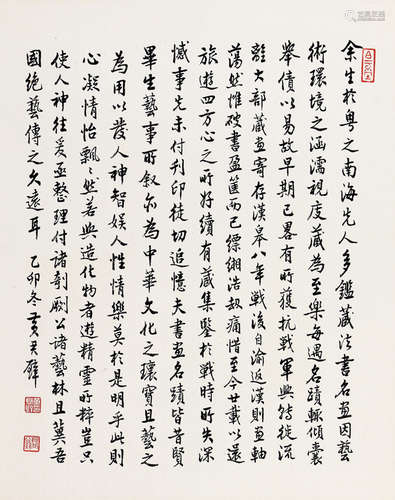 余生於粵之南海先人多鑑藏法書名畫因藝
術環境之涵濡視度藏為至樂每遇名蹟輒傾囊
舉債以易故早期已畧有所獲抗戰軍興於從流
大部藏畫寄存漢皋八年戰後自渝返漢則畫軸
蕩然惟破書盈篋而已縹緗浩劫痛惜至今廿載以還
旅遊四方心之所好續有藏集鑒於戰時所失深
憾事先未付刊印徒切追憶夫書畫名蹟皆昔賢
畢生藝事所叙亦為中華文化之瓌寶且藝之
為用以發人神智娛人性情樂莫於是明乎此則
心凝情怡飄飄然若與造化物者遊精靈所粹豈只
使人神往爰亟整理付諸剞劂公諸藝林且冀吾
國絕藝傳之久遠耳 乙卯冬 黃君璧